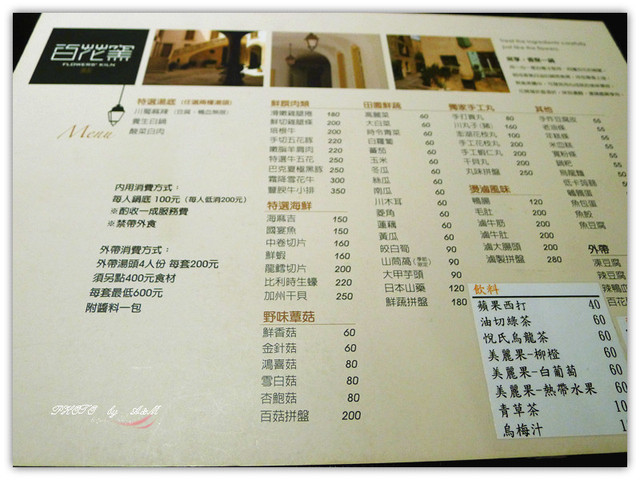 百花窯
FLOWERS' KILN
Menu
特選湯底
川蜀麻辣
養生白鍋
酸菜白肉
內用消費方式：
每人鍋底 100元 (每人低消200元)
※酌收一成服務費
※禁帶外食
外帶消費方式：
外帶湯頭4人份 每套200元
須另點400元食材
每套最低600元
附醬料一包
鮮饌肉類
滑嫩雞腿捲 180
鮮切雞腿條 200
培根牛 200
手切五花豚 220
嫩脂羊肩肉 220
特選牛五花 250
巴克夏極黑豚 250
霜降雪花牛 300
豐腴牛小排 350
特選海鮮
海麻吉 150
國宴魚 150
中卷切片 160
鮮蝦 160
龍鱈切片 200
比利時生蠔 220
加州干貝 250
野味蕈菇
鮮香菇 60
金針菇 60
鴻喜菇 80
雪白菇 80
杏鮑菇 80
百菇拼盤 200
田園鮮蔬
高麗菜 60
大白菜
時令青菜
白蘿蔔
蕃茄
玉米
冬瓜
絲瓜
南瓜
川木耳
菱角
蓮藕
黃瓜
皎白筍
山茼萵
大甲芋頭
日本山藥
鮮蔬拼盤 180
獨家手工丸
手打貢丸
川丸子
澎湖花枝丸
手工花枝丸
手工蝦仁丸
干貝丸
丸味拼盤
燙滷風味
鴨腸 120
毛肚 200
滷牛筋 200
滷牛肚 200
滷大腸頭 200
滷製拼盤 280
其他
手作豆腐皮 55
老油條 55
芋粿條 55
米豆麩 55
寬粉條
鍋粑
烏龍麵
魚包蛋
魚餃
魚豆腐
外帶
凍豆腐
辣豆
辣鴨
百花
飲料
蘋果西打 40
油切綠茶 60
悅氏烏龍茶 60
美麗果-柳橙 60
美麗果-白葡萄 60
美麗果-熱帶水果 60
青草茶 10
烏梅汁 10
PHOTO by